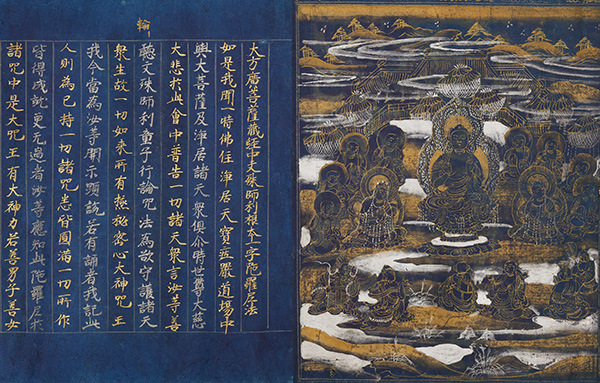 輪
大方廣菩薩藏経中文殊師利根本一字陀羅尼法
如是我聞一時佛住淨居天寶莊嚴道場中
與大菩薩及淨居諸天衆俱尒時世尊大慈
大悲於此會中普告一切諸天衆言汝等善
聽文殊師利童子行論咒法為欲守護諸天
衆生故一切如来所有極秘密心大神咒王
我今當為汝等開示演説若有誦者我記此
人則為已持一切諸咒悉皆圓滿一切所作
皆得成就更无過者汝等應知此陀羅尼於
諸咒中是大咒王有大神力若善男子善女